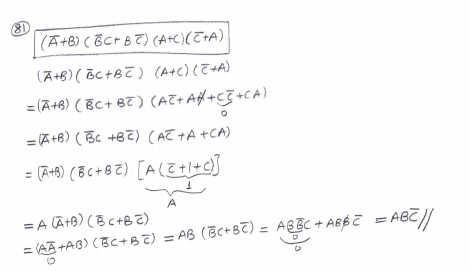 81
(A̅+B) (B̅C+BC̅) (A+C)(C̅+A)
(A̅+B)(B̅C+BC̅) (A+C)(C̅+A)
=(A̅+B) (B̅C+BC̅) (AC̅+AA+CC̅+CA)
0
=(A̅+B) (B̅C+BC̅) (AC̅+A+CA)
=(A̅+B) (B̅C+BC̅) [A(C̅+1+C)]
1
A
=A (A̅+B) (B̅C+BC̅)
=(AA̅+AB) (B̅C+BC̅) = AB (B̅C+BC̅) = ABB̅C + ABBC̅ = ABC̅//
0 0